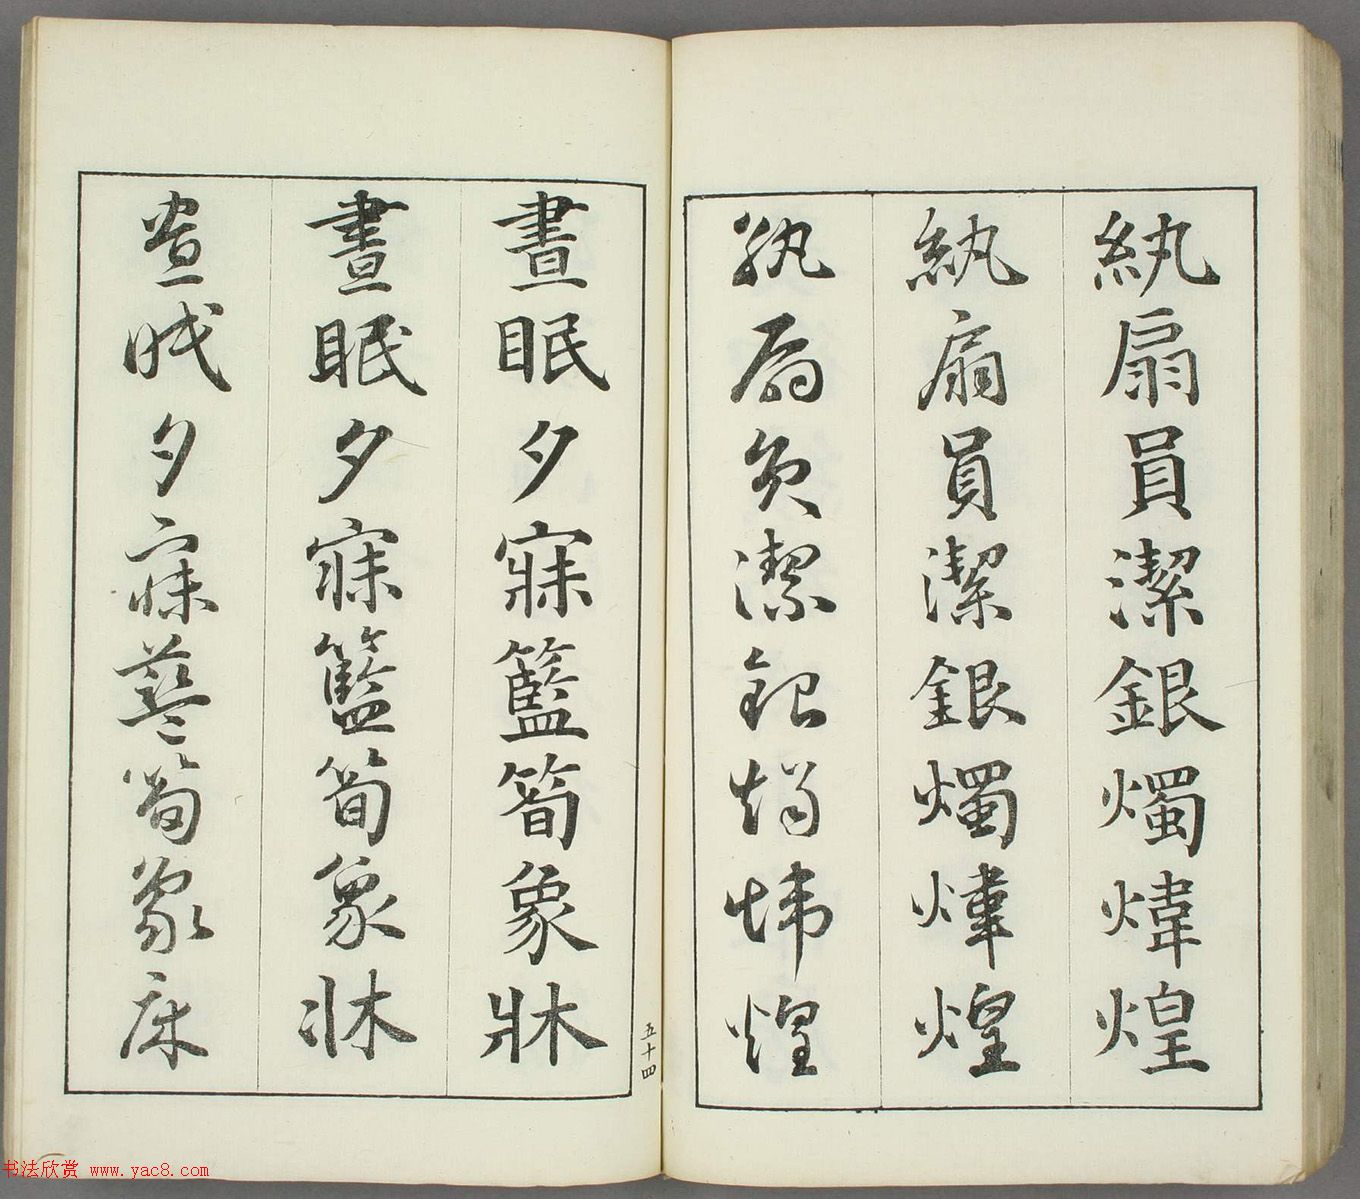 紈扇員潔銀燭煒煌
紈扇員潔銀燭煒煌
紈扇員潔銀燭煒煌
五十四
晝眠夕寐籃筍象牀
晝眠夕寐籃筍象牀
晝眠夕寐藍筍象床
书法欣赏 www.yac8.com